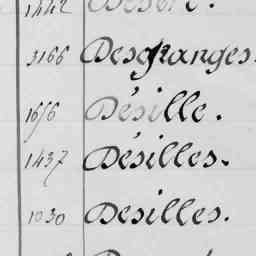 1442
3166 Desgranges.
1656 Désille.
1437 Désilles.
1030 Desilles.